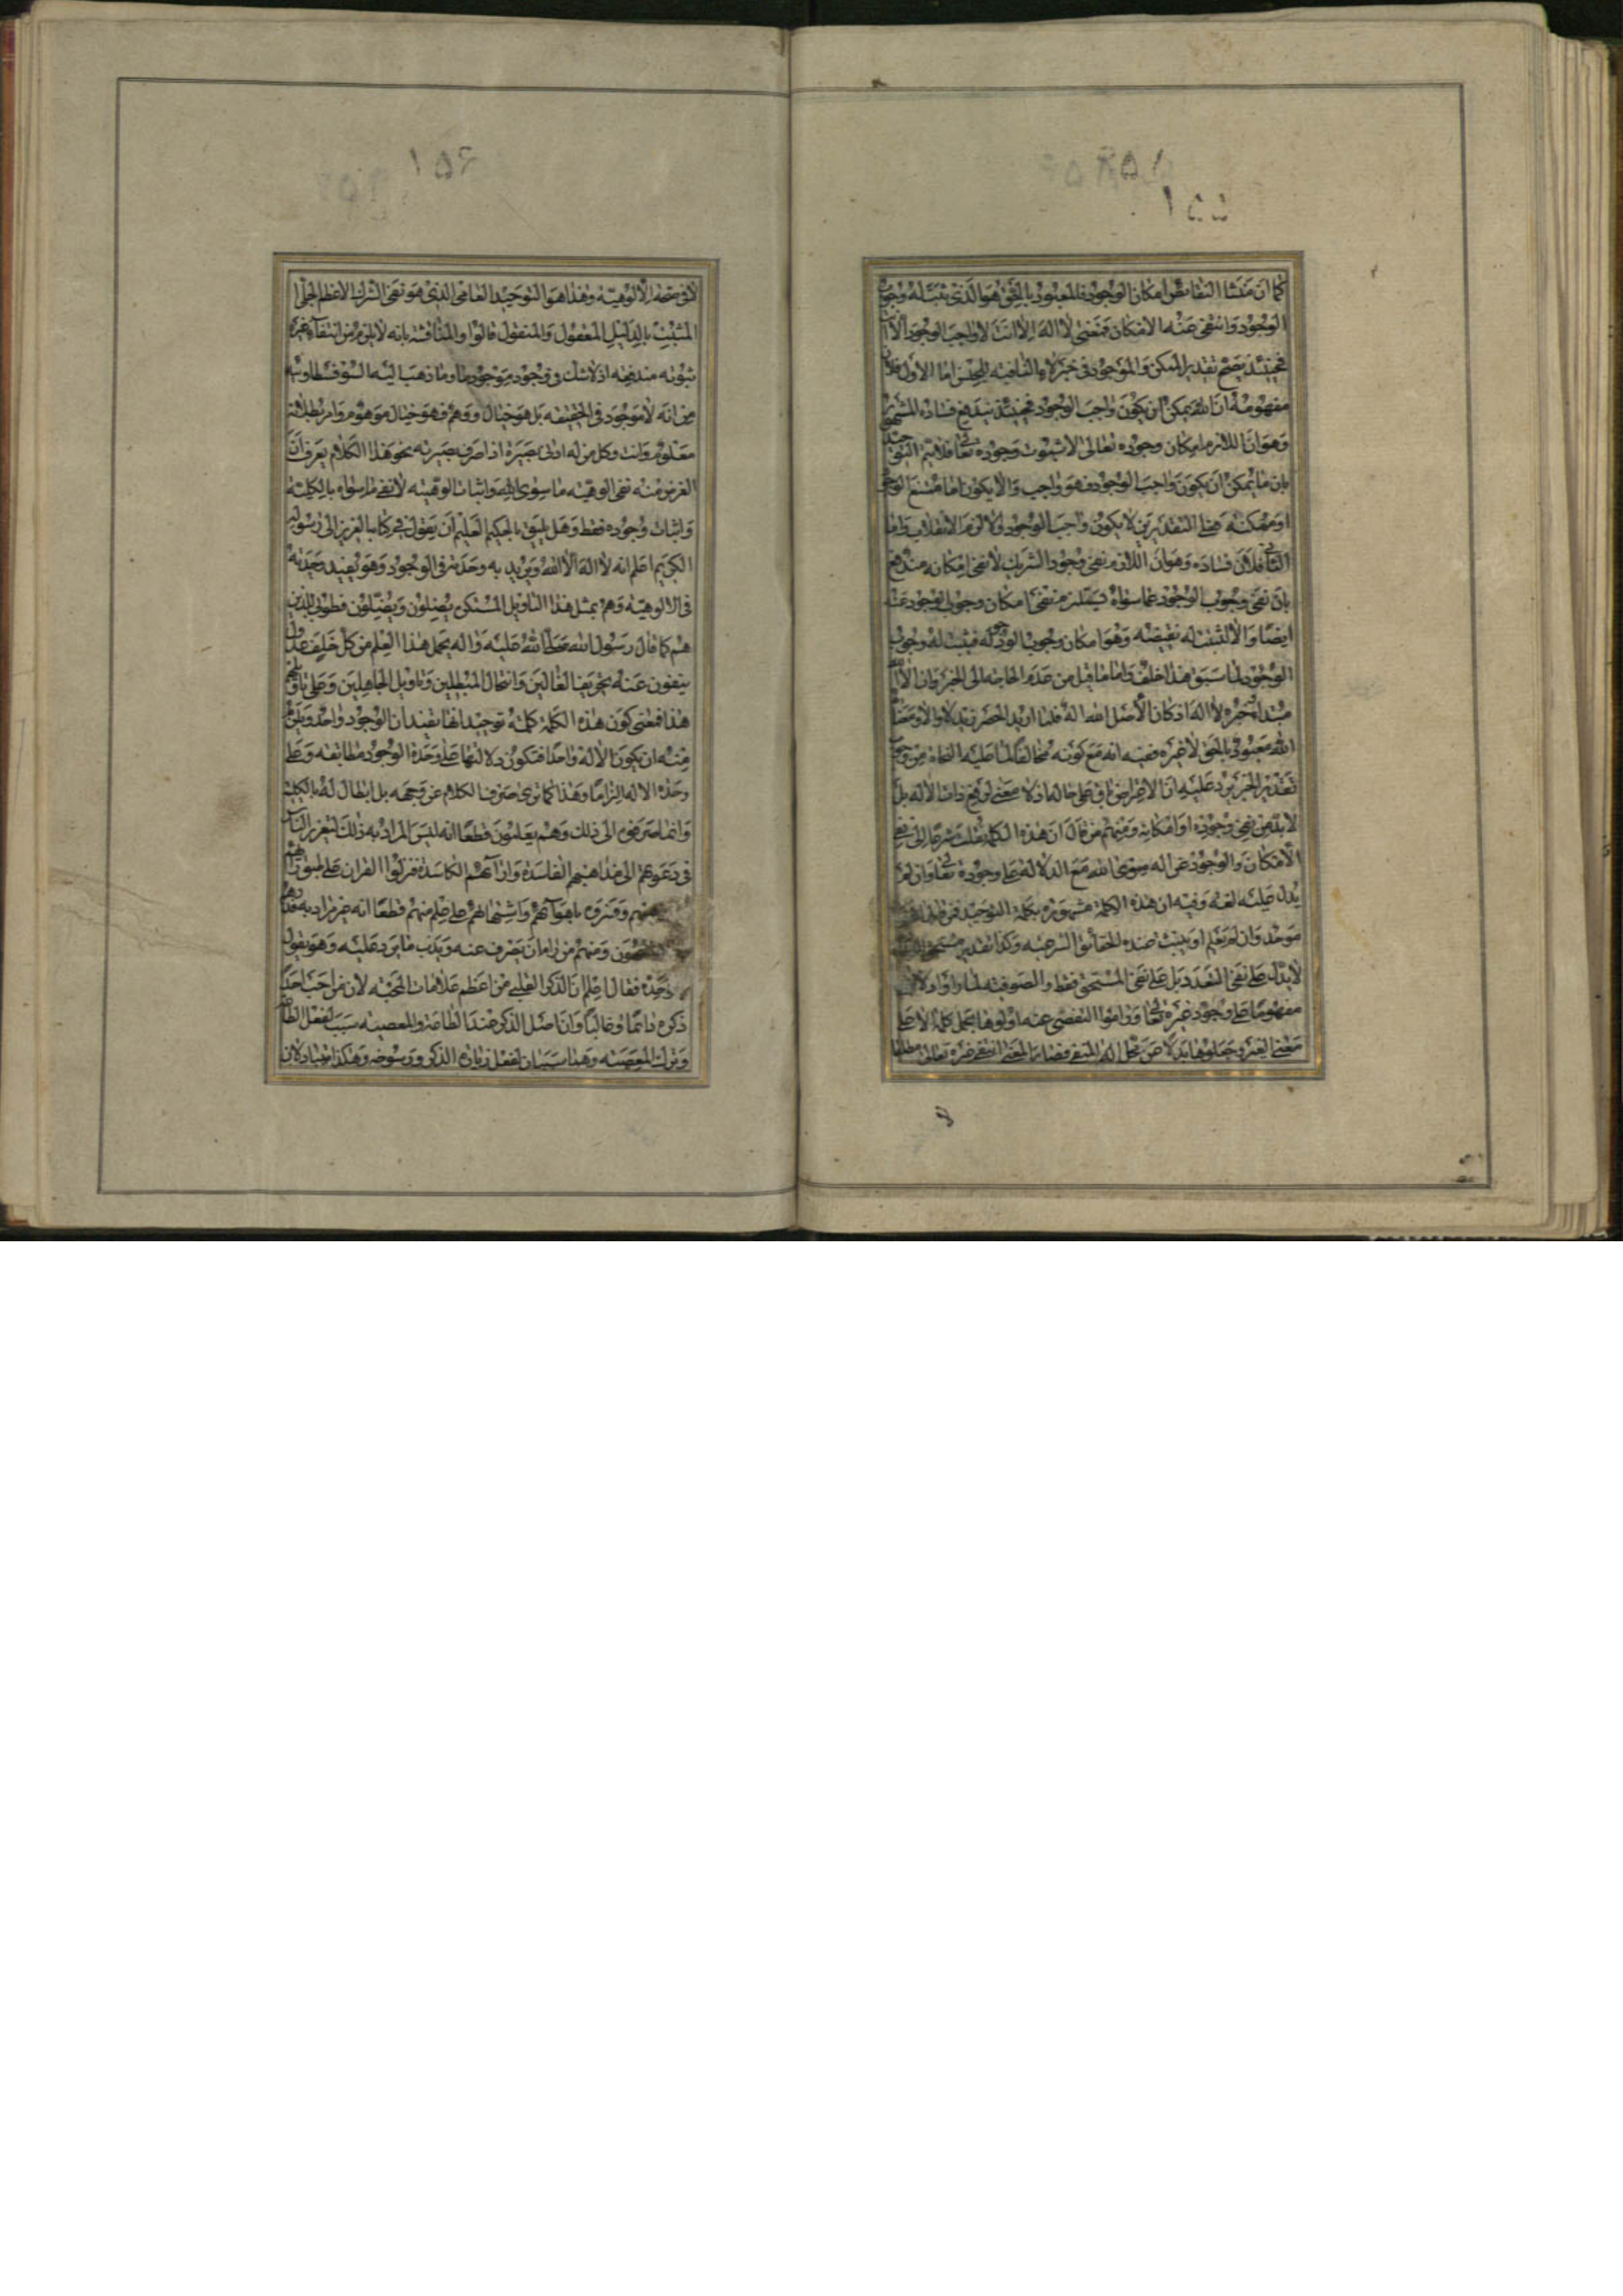 ١٥٤
١٥٥
كما ان منشأ النقائص امكان الوجود فالمعبود بالحق هو الذى ثبت له وجوب
الوجود وانتفى عنه الامكان فمعنى لا اله الا انت لا واجب الوجود الا انت
فحينئذ يصح تقدير الممكن والموجود فى خبر لاء النافية للجنس اما الاول فلان
مفهومه ان الله يمكن ان يكون واجب الوجود فحينئذ يندفع فساده المشهور
وهو ان اللازم امكان وجوده تعالى لا ثبوت وجوده تعا فلا يتم التوحيد
بان ما يمكن ان يكون واجب الوجود فهو واجب والا يكون اما ممتنع الوجود
او ممكنه فعلى التقديرين لا يكون واجب الوجود والا لزم الانقلاب واما
الثانى فلان فساده وهو ان اللازم نفى وجود الشريك لا نفى امكانه مندفع
بان نفى وجوب الوجود عما سواه يستلزم نفى امكان وجوب الوجود عنه
ايضا والا لثبت له نقيضه وهو امكان وجوب الوجود له فيثبت له وجوب
الوجود لما سبق هذا خلف واما ما قيل من عدم الحاجة الى الخبر وان الا الله
مبتدا خبره لا اله اذ كان الاصل الله اله فلما اريد الحصر زيد لا والا ومعناه
الله معبود بالحق لا غيره ففيه انه مع كونه مخالفا لما عليه النحاة من وجوب
تقدير الخبر يرد عليه ان الاعتراض باق على حاله اذ لا معنى لرفع ذات الاله بل
لابد من نفى وجوده او امكانه ومنهم من قال ان هذه الكلمة نقلت شرعا الى نفى
الامكان والوجود عن اله سوى الله مع الدلالة على وجوده تعا وان لم
يدل عليه لغة وفيه ان هذه الكلمة مشهورة بكلمة التوحيد فمن
موحد وان لم يعلم او يثبت عنده الحقائق الشرعية وكذا تقدير مستحق
لا يدل على نفى التعدد بل على نفى المستحق فقط والصوفية لما راوا
مفهوما على وجود غيره تعا وراموا التفصى عنه اولوها بحمل كلمة الا على
معنى الغير وجعلوها بدلا عن محل اله المنفى فصار المعنى انتفى غيره تعالى مطلقا
١٥٦
لا فى صفة الالوهية وهذا هو التوحيد العامى الذى هو نفى الشرك الاعظم الجلى
المثبت بالدليل المعقول والمنقول قالوا والمناقشة بانه لا يلزم من انتفاء غيره
ثبوته مندفعة اذ لا شك فى وجود موجود ما وما ذهب اليه السوفسطاوية
من انه لا موجود فى الحقيقة بل هو خيال ووهم فهو خيال موهوم وامر بطلانه
معلوم وانت وكل من له ادنى بصيرة اذا صرف بصيرته نحو هذا الكلام يعرف ان
الغرض منه نفى الوهية ما سوى الله واثبات الوهيته لا نفى ما سواه بالكلية
واثبات وجوده فقط وهل يليق بالحكيم العليم ان يقول فى كتابه العزيز الى رسوله
الكريم اعلم انه لا اله الا الله ويريد به وحدته فى الوجود وهو يفيد وحدته
فى الالوهية وهم بمثل هذا التاويل المستنكر يضلون ويضلون فطوبى للذين
هم كما قال رسول الله صلى الله عليه واله يحمل هذا العلم من كل خلف عدول
ينفون عنه تحريف الغالين وانتحال المبطلين وتاويل الجاهلين وعلى تاويلهم
هذا فمعنى كون هذه الكلمة كلمة توحيد انها يفيد ان الوجود واحد ويلزم
منه ان يكون الاله واحدا فتكون دلالتها على وحدة الوجود مطابقة وعلى
وحدة الاله التزاما وهذا كما ترى صرف الكلام عن وجهه بل ابطال له بالكلية
وانما صرفوه الى ذلك وهم يعلمون قطعا انه ليس المراد به ذلك لتغرير الناس
فى دعوتهم الى مذاهبهم الفاسدة وارآئهم الكاسدة فنزلوا القران على طبق رايهم
وفسروه باهوآئهم واشتهائهم على علم منهم قطعا انه غير مراد به فقد
ومنهم من رام ان يصرف عنه ويذب ما يرد عليه وهو يقول
وحده فقال اعلم ان الذكر القلبى من اعظم علامات المحبة لان من احب احدا
ذكره دائما او غالبا وان اصل الذكر عند الطاعة والمعصية سبب لفعل الطاعة
وترك المعصية وهما سببان لفعل زيادة الذكر ورسوخه وهكذا يتبادلان